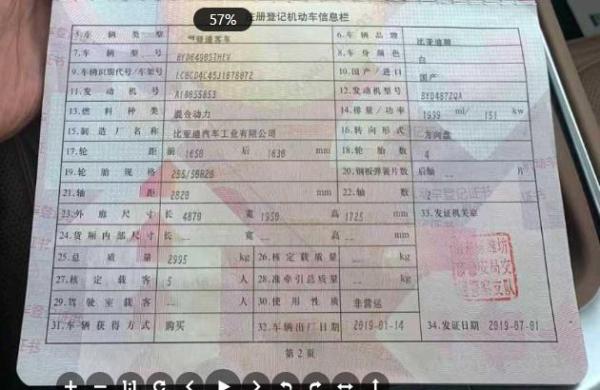 57%
注册登记机动车信息栏
5.车辆类型 客车 6.车辆品牌 比亚迪牌
7.车辆型号 BYD6490STHEV 8.车身颜色 白
9.车辆识别代号/车架号 10.国产/进口 国产
11.发动机号 12.发动机型号 BYD487ZQA
13.燃料种类 混合动力 14.排量/功率 1999 ml/ 151 kw
15.制造厂名称 比亚迪汽车工业有限公司 16.转向形式 方向盘
17.轮距 前 1650 后 1630 mm 18.轮胎数 4
19.轮胎规格 255/50R20 20.钢板弹簧片数 后轴 -- 片
21.轴距 2820 mm 22.轴数 2
23.外廓尺寸 长 4870 宽 1950 高 1725 mm 33.发证机关章
24.货厢内部尺寸 长 -- 宽 -- 高 -- mm
25.总质量 2995 kg 26.核定载质量 -- kg
27.核定载客 5 人 28.准牵引总质量 -- kg
29.驾驶室载客 -- 人 30.使用性质 非营运
31.车辆获得方式 购买 32.车辆出厂日期 2019-01-14 34.发证日期 2019-07-01
第 2 页
1:1